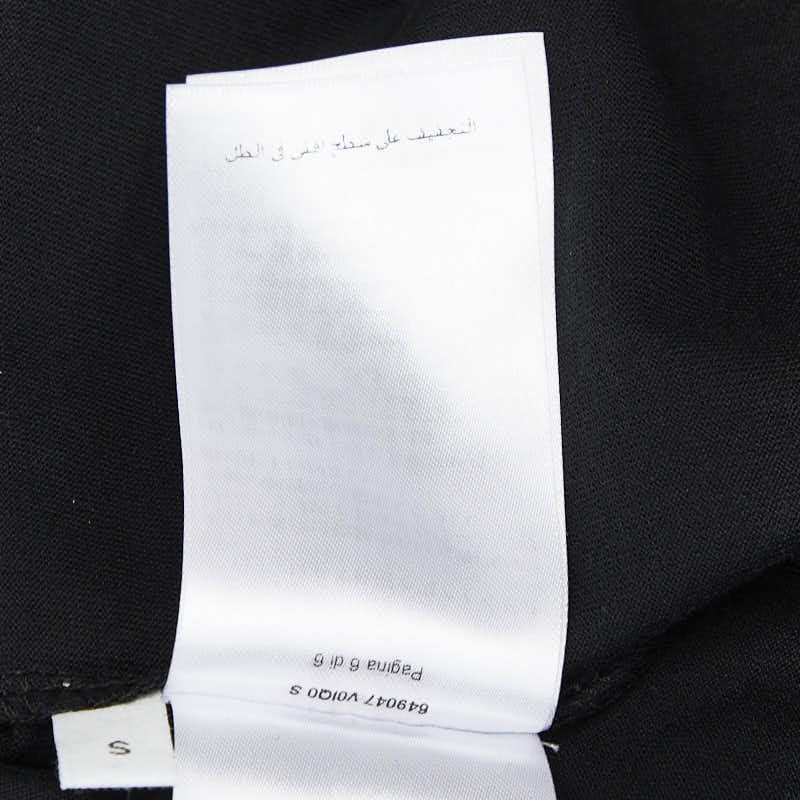 التجفيف على سطح افقى فى الظل
Pagina 6 di 6
649047 V0IQ0 S
S